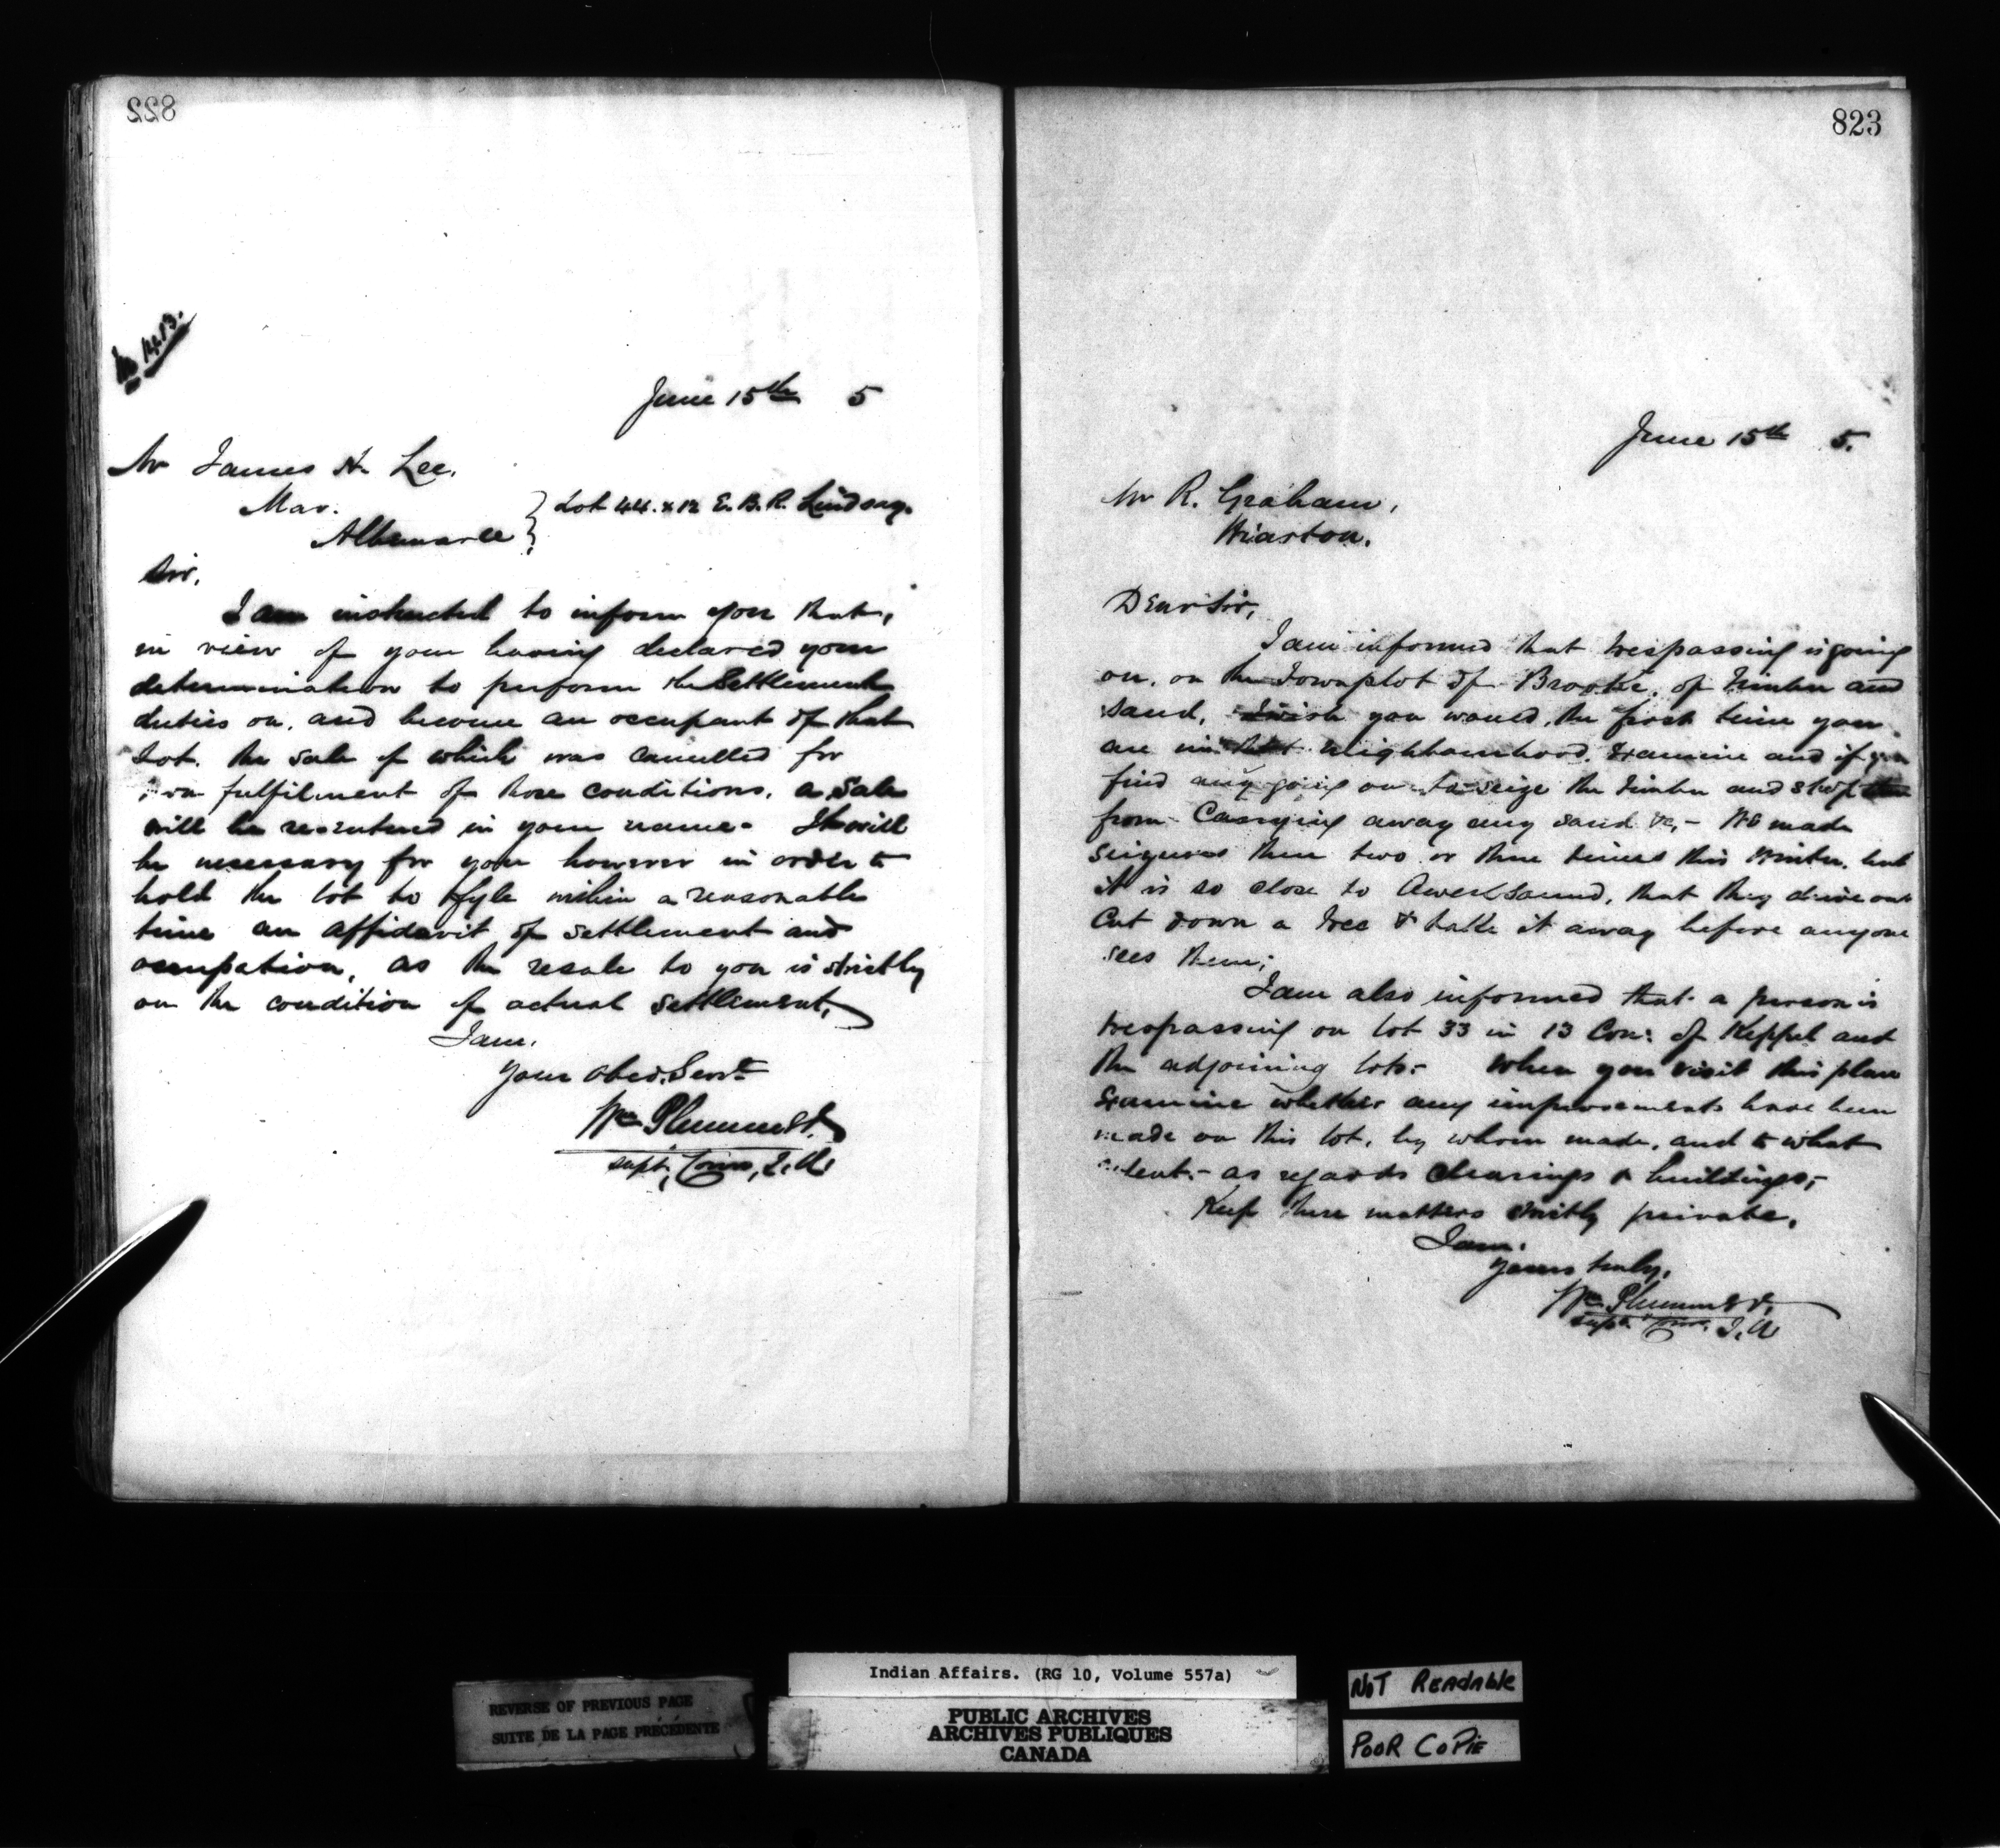 822
No 1413.
June 15th 5
Mr James H. Lee.
Mar.
Albemarle } Lot 44. x 12 E. B. R. Lindsay.
Sir,
I am instructed to inform you that,
in view of your having declared your
determination to perform the Settlement
duties on, and become an occupant of that
Lot. the sale of which was cancelled for
non fulfilment of those conditions, a Sale
will be re-entered in your name - It will
be necessary for you however in order to
hold the lot to fyle within a reasonable
time an affidavit of settlement and
occupation, as the resale to you is strictly
on the condition of actual settlement,
I am.
Your Obed. Servt
Wm Plummer
Supt, Comr, I. A.
823
June 15th 5.
Mr R. Graham,
Wiarton.
Dear Sir,
I am informed that trespassing is going
on, on the Townplot of Brooke, of Timber and
sand, I wish you would, the first time you
are in that neighbourhood, examine and if you
find any going on to seize the timber and stop them
from Carrying away any sand &c, - We made
seizures there two or three times this Winter, but
it is so close to Owen Sound, that they drive out
Cut down a tree & take it away before anyone
sees them;
I am also informed that a person is
trespassing on lot 33 in 13 Con: of Keppel and
the adjoining lots - When you visit this place
Examine whether any improvements have been
made on this lot, by whom made, and to what
extent - as regards clearings & buildings;
Keep these matters strictly private.
I am.
Yours truly,
Wm Plummer,
Supt. Comr. I. A
Indian Affairs. (RG 10, Volume 557a)
REVERSE OF PREVIOUS PAGE
SUITE DE LA PAGE PRÉCÉDENTE
PUBLIC ARCHIVES
ARCHIVES PUBLIQUES
CANADA
NOT READABLE
POOR COPIE